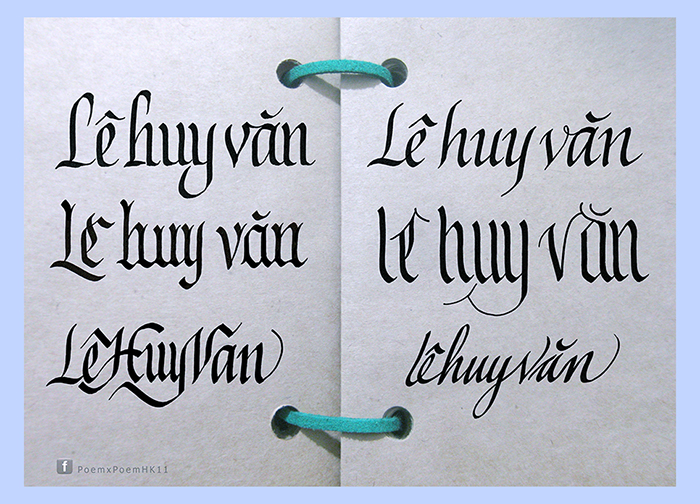 Lê huy văn
Lê huy văn
LêHuyVăn
Lê huy văn
lê huy văn
lêhuyvăn
f PoemxPoemHK11